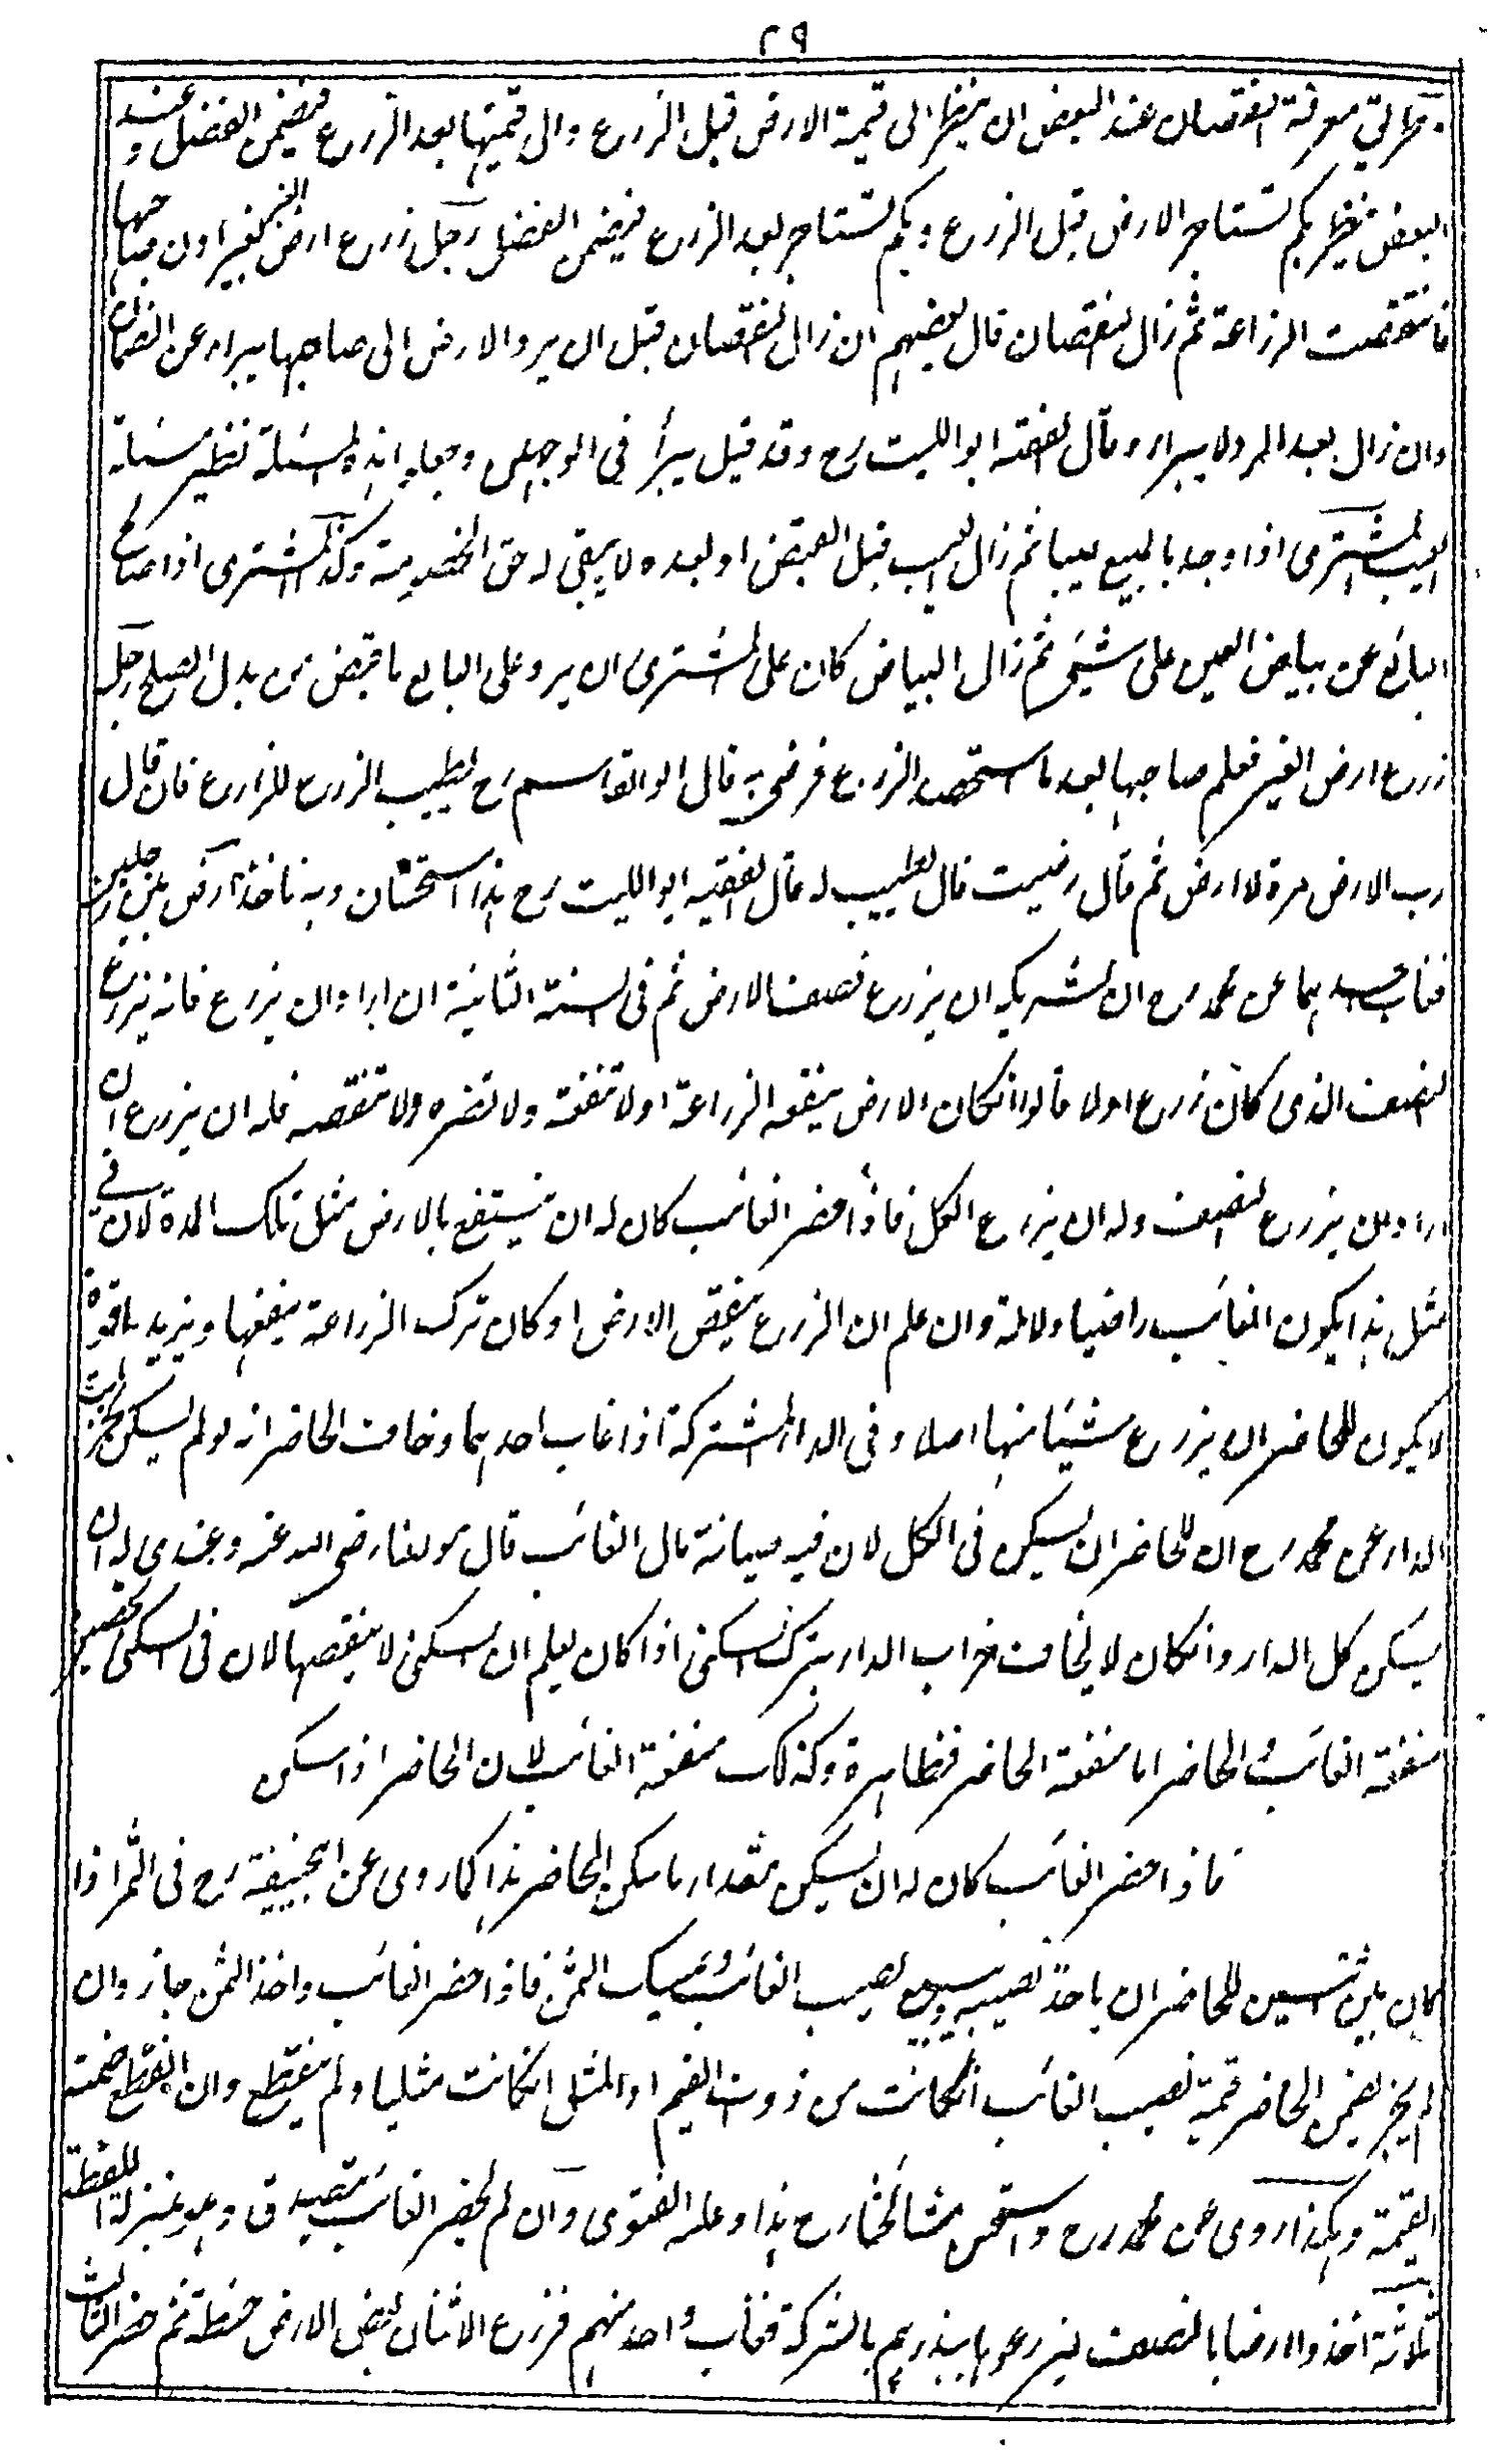 ٢٩
وطريق معرفة النقصان عند البعض ان ينظر الى قيمة الارض قبل الزرع والى قيمتها بعد الزرع فيضمن الفضل وعند
البعض ينظر بكم تستاجر الارض قبل الزرع وبكم تستاجر بعد الزرع فيضمن الفضل رجل زرع ارض الغير بغير اذن صاحبها
فانتقصت الزراعة ثم زال النقصان قال بعضهم ان زال النقصان قبل ان يرد الارض الى صاحبها يبراء عن الضمان
وان زال بعد الرد لا يبراء وقال الفقيه ابو الليث رح وقد قيل يبرأ في الوجهين وجعل هذه المسئلة نظير مسئلة
العيب المشترى اذا وجد بالمبيع عيبا ثم زال العيب قبل القبض او بعده لا يبقى له حق الخصومة وكذا المشترى اذا صالح
البائع عن بياض العين على شيئ ثم زال البياض كان على المشترى ان يرد على البايع ما قبض من بدل الصلح رجل
زرع ارض الغير فعلم صاحبها بعد ما استحصد الزرع فرضى به قال ابو القاسم رح يطيب الزرع للزارع فان قال
رب الارض مرة لا ارضى ثم قال رضيت قال يطيب له قال الفقيه ابو الليث رح هذا استحسان وبه ناخذ ارض بين رجلين
فغاب احدهما عن محمد رح ان لشريكه ان يزرع نصف الارض ثم فى السنة الثانية ان اراد ان يزرع فانه يزرع
النصف الذى كان زرع اولا قالوا انكان الارض ينفعه الزراعة او لا تنفعه ولا تضره ولا تنقصه فله ان يزرع ان
اراد ان يزرع النصف وله ان يزرع الكل فاذا حضر الغائب كان له ان ينتفع بالارض مثل تلك المدة لان فى
مثل هذا يكون الغائب راضيا دلالة وان علم ان الزرع ينقص الارض او كان ترك الزراعة ينفعها ويزيدها قوة
لا يكون للحاضر ان يزرع شيئا منها اصلا وفى الدار المشتركة اذا غاب احدهما وخاف الحاضر انه لو لم يسكن تخربت
الدار عن محمد رح ان للحاضر ان يسكن فى الكل لان فيه صيانة مال الغائب قال مولانا رضى الله عنه وعندى له ان
يسكن كل الدار وانكان لا يخاف خراب الدار بترك السكنى اذا كان يعلم ان السكنى لا ينقصها لان فى السكنى تحصيل
منفعة الغائب والحاضر اما منفعة الحاضر فظاهرة وكذلك منفعة الغائب لان الحاضر اذا سكن
فاذا حضر الغائب كان له ان يسكن مقدار ما سكن الحاضر هذا كما روى عن ابيحنيفة رح فى الثمر اذا
كان بين اثنين للحاضر ان ياخذ نصيبه ويبيع نصيب الغائب ويمسك الثمن فاذا حضر الغائب واخذ الثمن جاز وان
لم يجز يضمن الحاضر قيمة نصيب الغائب انكانت من ذوات القيم او المثل انكانت مثليا ولم ينقطع وان انقطع ضمنه
القيمة وهكذا روى عن محمد رح واستحسن مشائخنا رح هذا وعليه الفتوى وان لم يحضر الغائب يتصدق وهو بمنزلة اللقطة
ثلاثة اخذوا ارضا بالنصف ليزرعوها ببذرهم بالشركة فغاب واحد منهم فزرع الاثنان بعض الارض حنطة ثم حضر الثالث